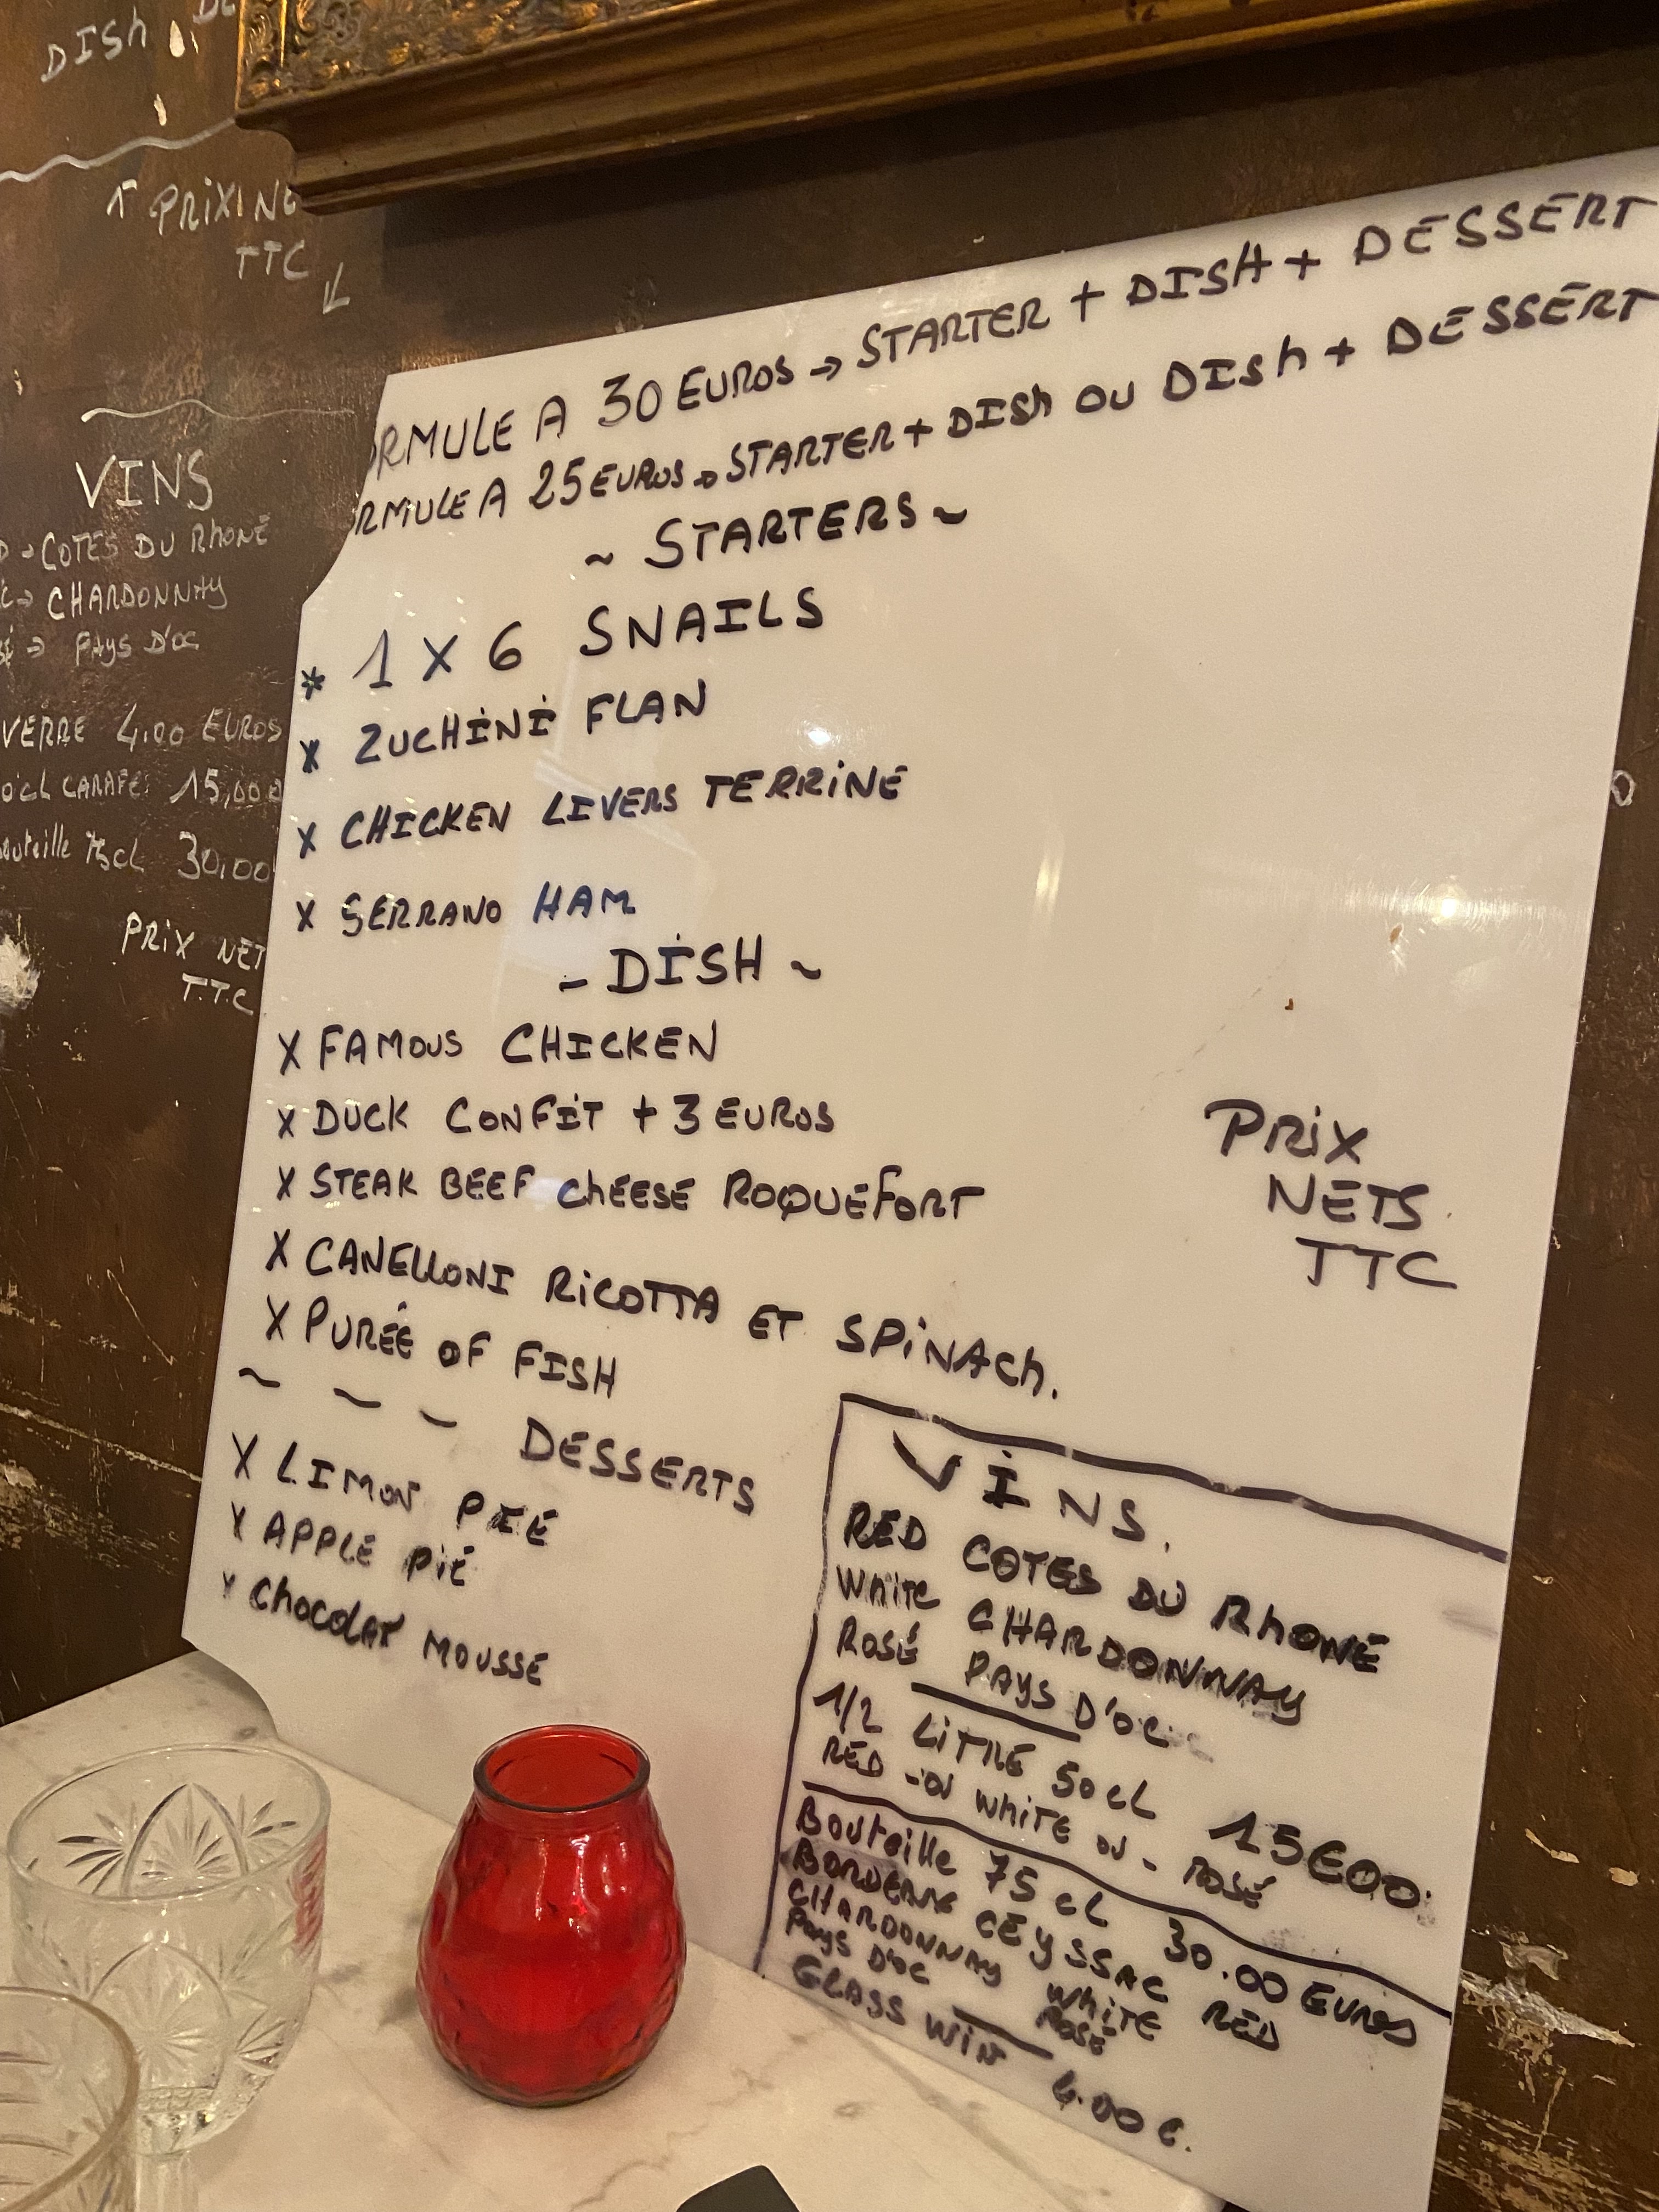 DISH
↑ PRIX NE
TTC
VINS
COTES DU RHONE
CHARDONNAY
PAYS D'OC
VERRE 4.00 EUROS
CARAFE 15,00
75cl 30,00
PRIX NET
T.T.C
ORMULE A 30 EUROS → STARTER + DISH + DESSERT
RMULE A 25 EUROS → STARTER + DISH OU DISH + DESSERT
~ STARTERS ~
* 1 X 6 SNAILS
X ZUCHINI FLAN
X CHICKEN LIVERS TERRINE
X SERRANO HAM
- DISH ~
X FAMOUS CHICKEN
X DUCK CONFIT + 3 EUROS
X STEAK BEEF CHEESE ROQUEFORT
X CANELLONI RICOTTA ET SPINACH.
X PURÉE OF FISH
~ ~ ~ DESSERTS
X LIMON PIE
X APPLE PIE
X CHOCOLAT MOUSSE
PRIX
NETS
TTC
VINS.
RED COTES DU RHONE
WHITE CHARDONNAY
ROSÉ PAYS D'OC
1/2 LITRE 50 cL 15€00
RED - OU WHITE OU - ROSÉ
Bouteille 75 cL 30.00 EUROS
CEYSSAC RED
CHARDONNAY WHITE
PAYS D'OC ROSÉ
GLASS WIN 4.00 €.